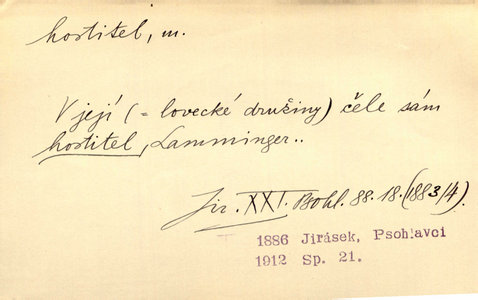 hostitel, m.
V její (= lovecké družiny) čele sám
hostitel, Lamminger..
Jir. XXI. Psohl. 88. 18. (1883/4).
1886 Jirásek, Psohlavci
1912 Sp. 21.